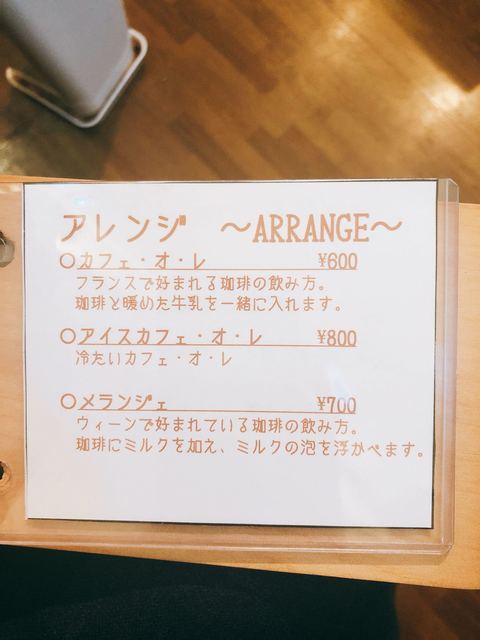 アレンジ ～ARRANGE～
○カフェ・オ・レ ¥600
フランスで好まれる珈琲の飲み方。
珈琲と暖めた牛乳を一緒に入れます。
○アイスカフェ・オ・レ ¥800
冷たいカフェ・オ・レ
○メランジェ ¥700
ウィーンで好まれている珈琲の飲み方。
珈琲にミルクを加え、ミルクの泡を浮かべます。